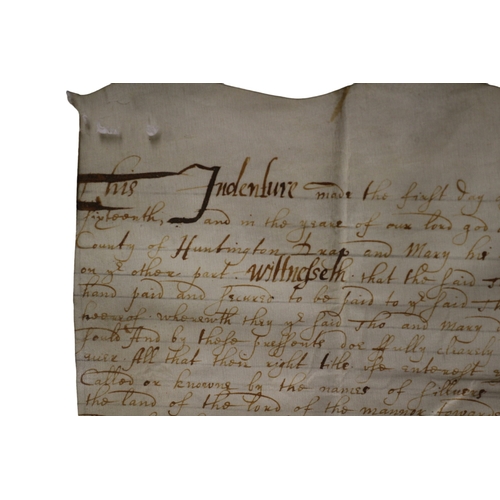 This Indenture made the first day
sixteenth, and in the yeare of our lord god
County of Huntington Drap and Mary his
on ye. other part. Wittnesseth that the said
hand paid and secured to be paid to ye said
heereof wherewth they ye said Tho and Mary
sould And by these pressents doe fully clearely
euer All that their right title vse interest
Called or knowne by the names of Silivers
the land of the lord of the mannor towards